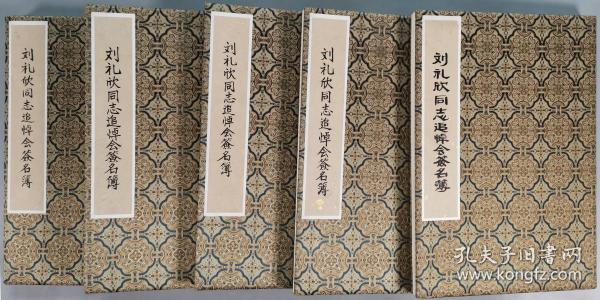 刘礼欣同志追悼会签名簿
刘礼欣同志追悼会签名簿
刘礼欣同志追悼会签名簿
刘礼欣同志追悼会签名簿
刘礼欣同志追悼会签名簿
孔夫子旧书网
www.kongfz.com